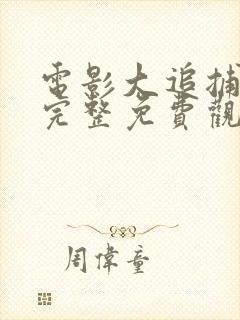 電影大追捕
完整免費觀
周偉童